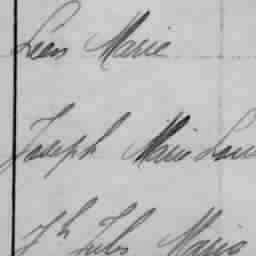 Léon Marie
Joseph Marie Loui
Jh Jules Marie